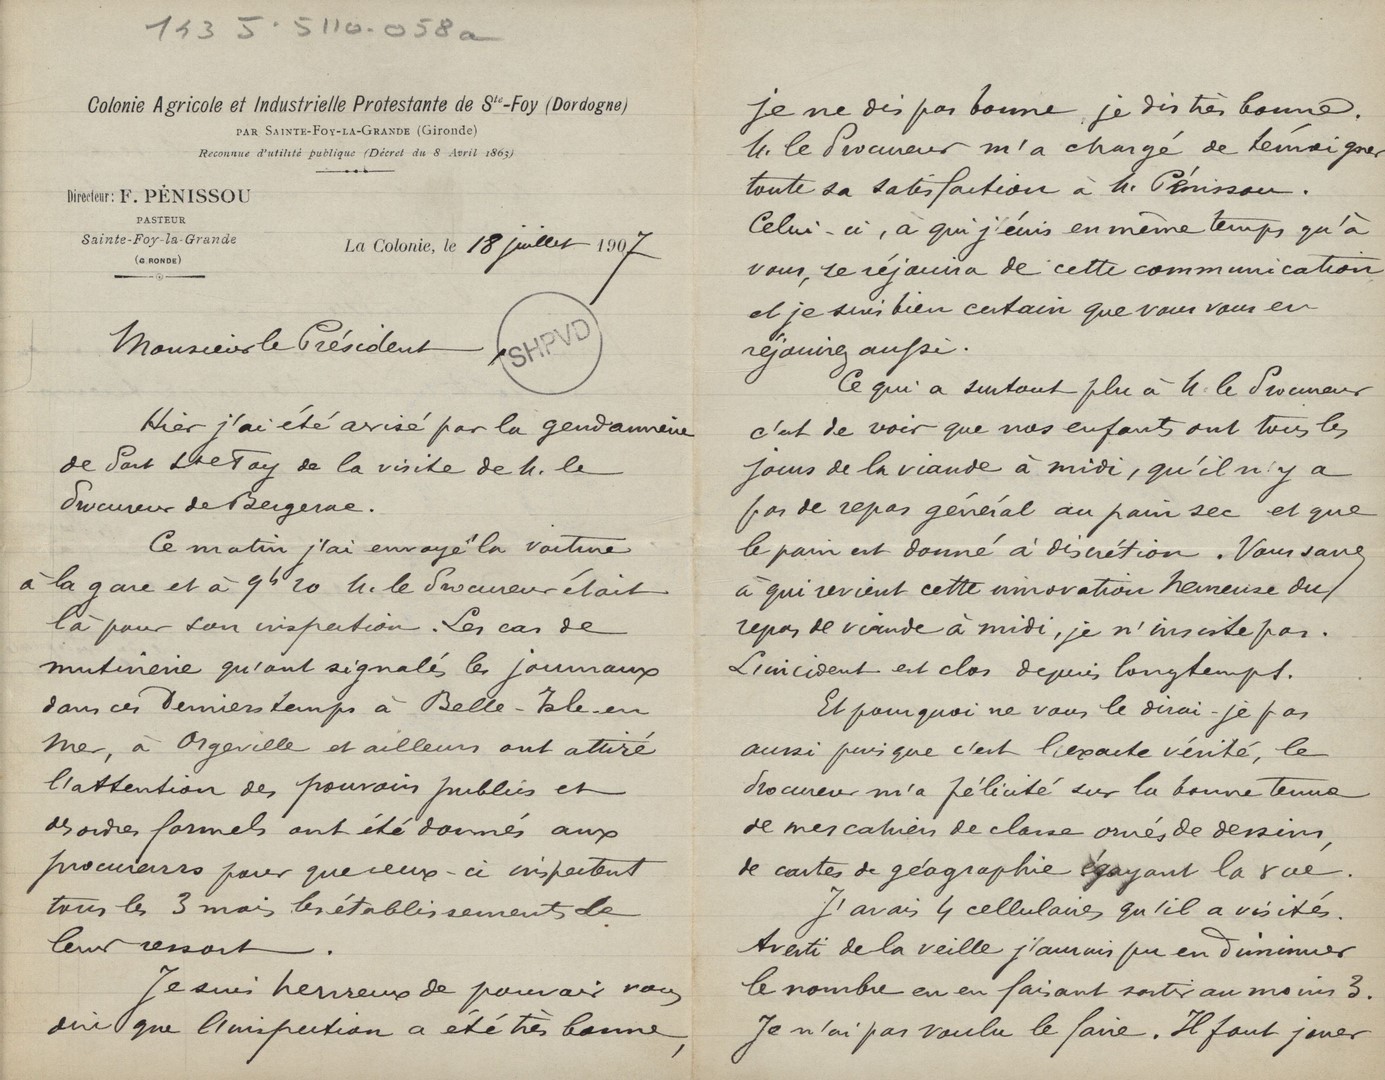 143 J. 5110.058a
Colonie Agricole et Industrielle Protestante de Ste-Foy (Dordogne)
PAR SAINTE-FOY-LA-GRANDE (Gironde)
Reconnue d'utilité publique (Décret du 8 Avril 1863)
Directeur: F. PÉNISSOU
PASTEUR
Sainte-Foy-la-Grande
(G RONDE)
La Colonie, le 18 juillet 1907
SHPVD
Monsieur le Président,
Hier j'ai été avisé par la gendarmerie
de Port Ste Foy de la visite de M. le
Procureur de Bergerac.
Ce matin j'ai envoyé la voiture
à la gare et à 9h 20 M. le Procureur était
là pour son inspection. Les cas de
mutinerie qu'ont signalés les journaux
dans ces derniers temps à Belle-Isle-en
Mer, à Orgeville et ailleurs ont attiré
l'attention des pouvoirs publics et
des ordres formels ont été donnés aux
procureurs pour que ceux-ci inspectent
tous les 3 mois les établissements de
leur ressort.
Je suis heureux de pouvoir vous
dire que l'inspection a été très bonne,
je ne dis pas bonne, je dis très bonne.
M. le Procureur m'a chargé de témoigner
toute sa satisfaction à M. Pénissou.
Celui-ci, à qui j'écris en même temps qu'à
vous, se réjouira de cette communication
et je suis bien certain que vous vous en
réjouirez aussi.
Ce qui a surtout plu à M. le Procureur
c'est de voir que nos enfants ont tous les
jours de la viande à midi, qu'il n'y a
pas de repas général au pain sec et que
le pain est donné à discrétion. Vous savez
à qui revient cette innovation heureuse du
repas de viande à midi, je n'insiste pas.
L'incident est clos depuis longtemps.
Et pourquoi ne vous le dirai-je pas
aussi puisque c'est l'exacte vérité, le
Procureur m'a félicité sur la bonne tenue
de mes cahiers de classe ornés de dessins,
de cartes de géographie égayant la vue.
J'avais 4 cellulaires qu'il a visités.
Averti de la veille j'aurais pu en diminuer
le nombre en en faisant sortir au moins 3.
Je n'ai pas voulu le faire. Il faut jouer